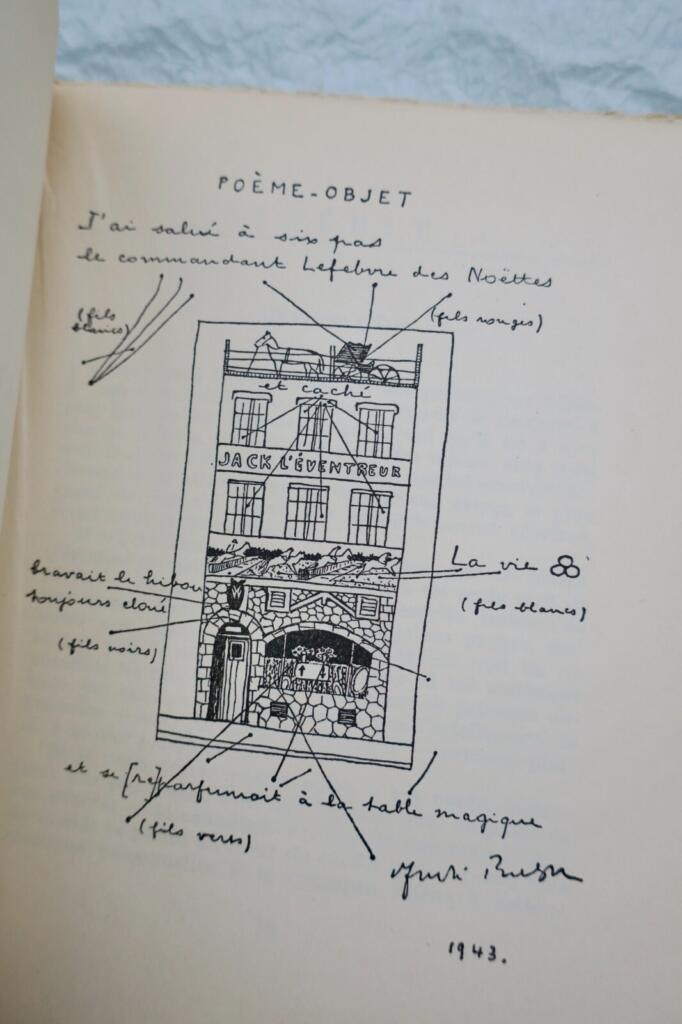 POÈME-OBJET
J'ai salué à six pas
le commandant Lefebvre des Noëttes
(fils
blancs)
(fils rouges)
et caché
JACK L'ÉVENTREUR
La vie
(fils blancs)
bravait le hibou
toujours cloué
(fils noirs)
et se [re]parfumait à la table magique
(fils verts)
André Breton
1943.